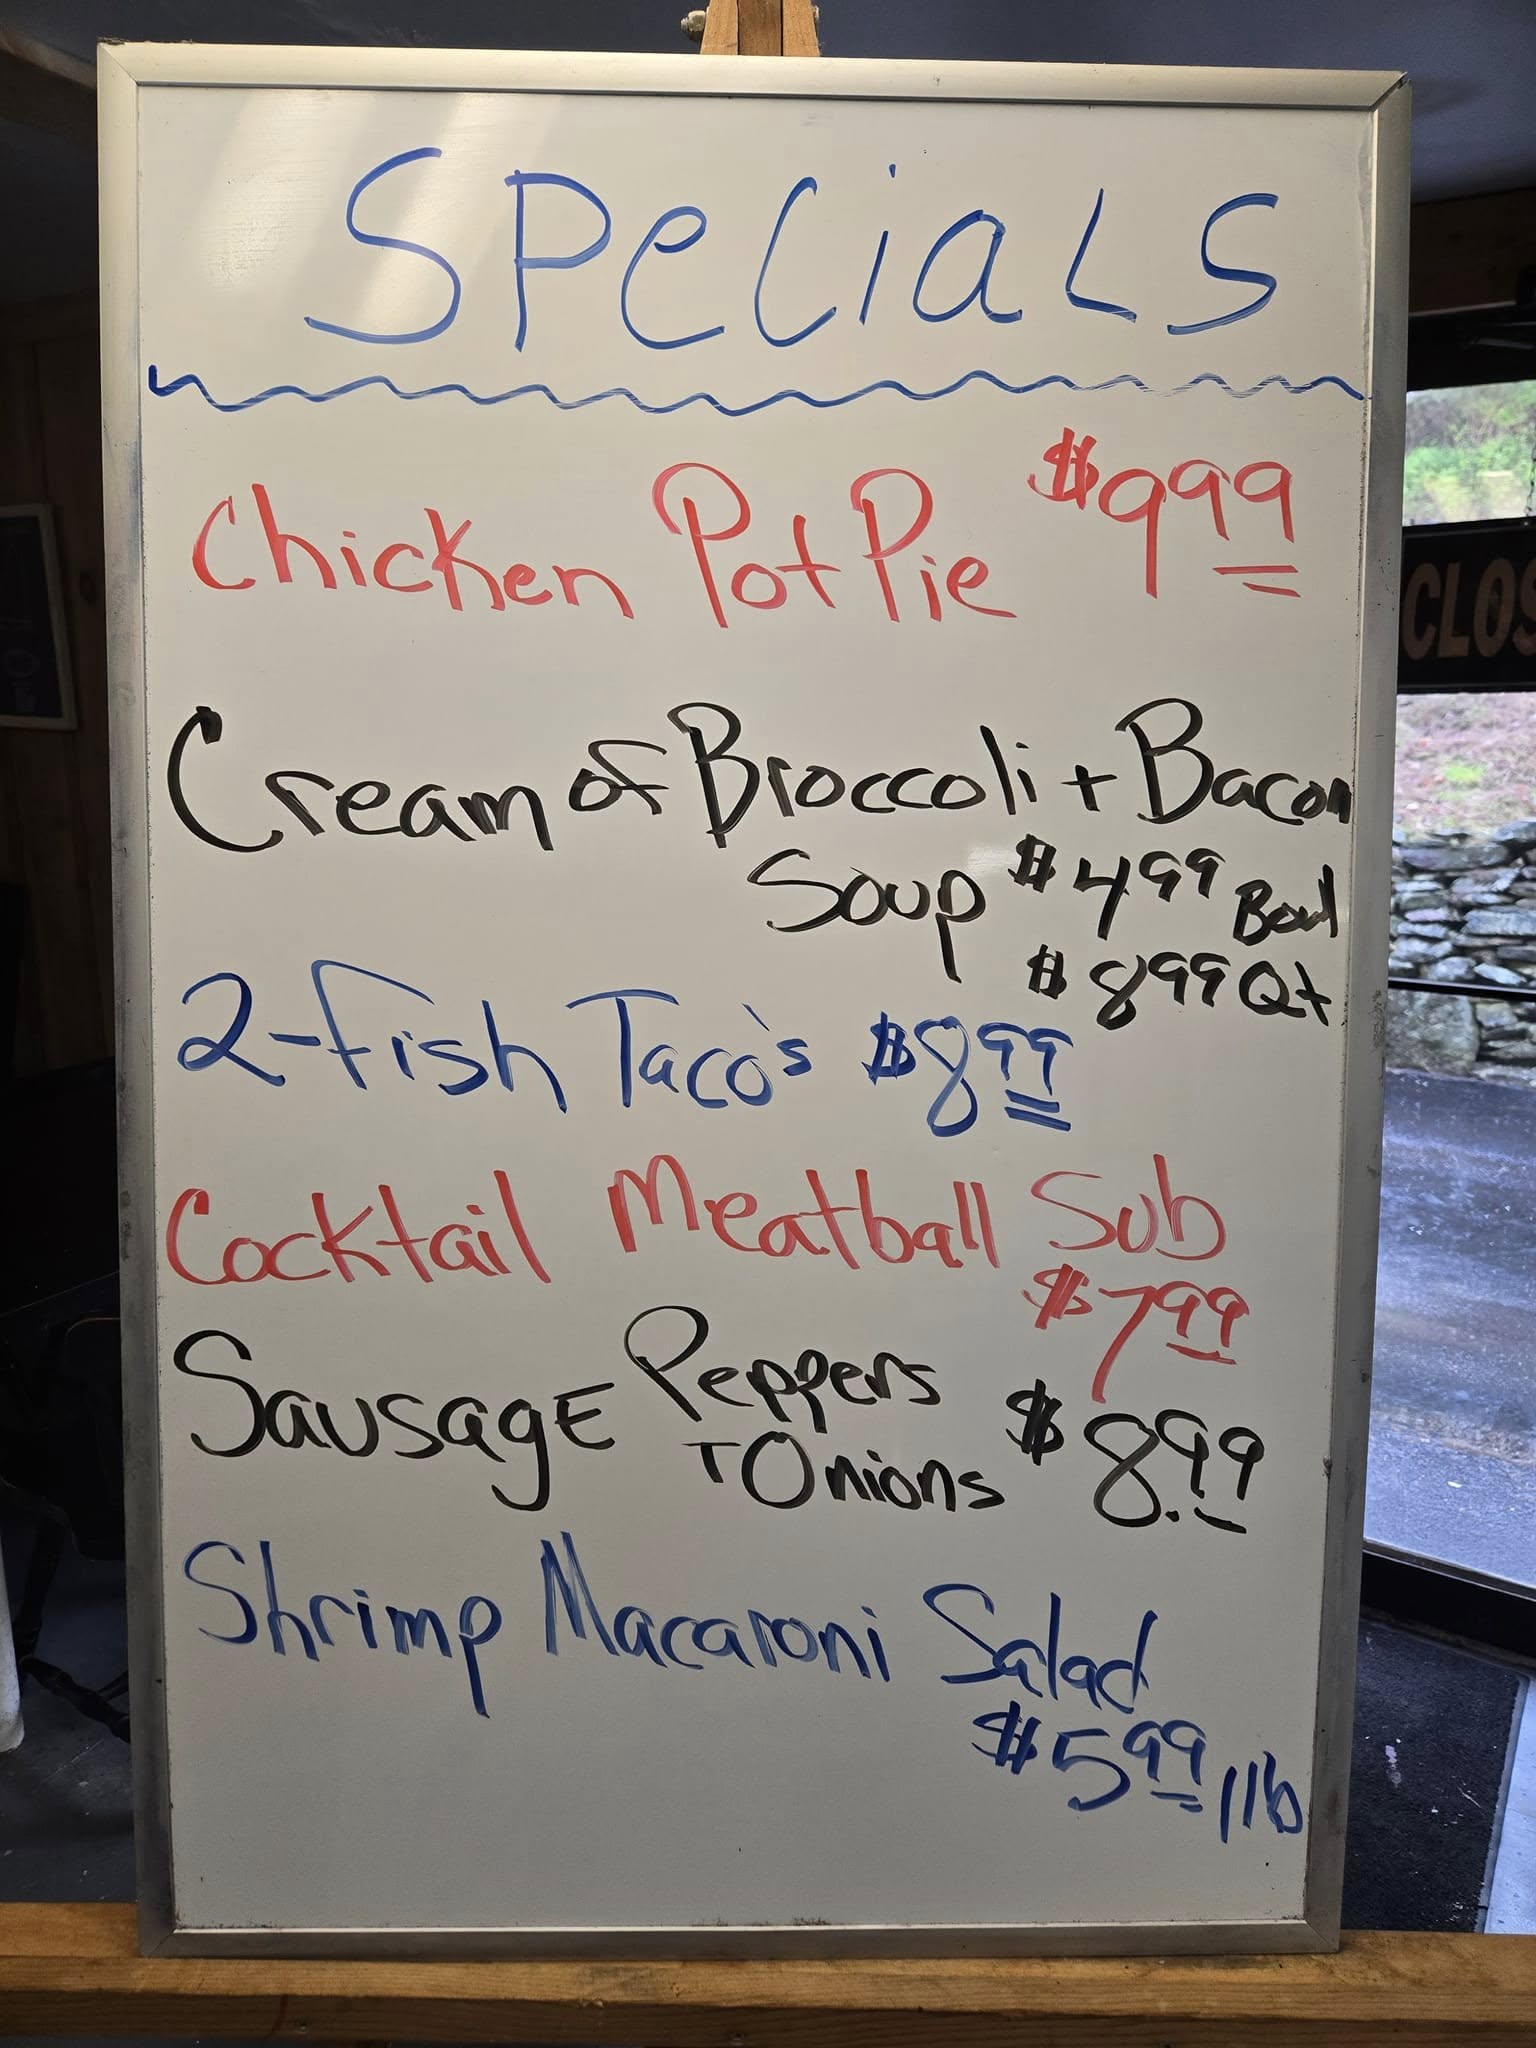 Specials
Chicken Pot Pie $9.99
Cream of Broccoli + Bacon
Soup $4.99 Bowl
$8.99 Qt
2-Fish Taco's $8.99
Cocktail Meatball Sub
$7.99
Sausage Peppers
+ Onions $8.99
Shrimp Macaroni Salad
$5.99 1lb